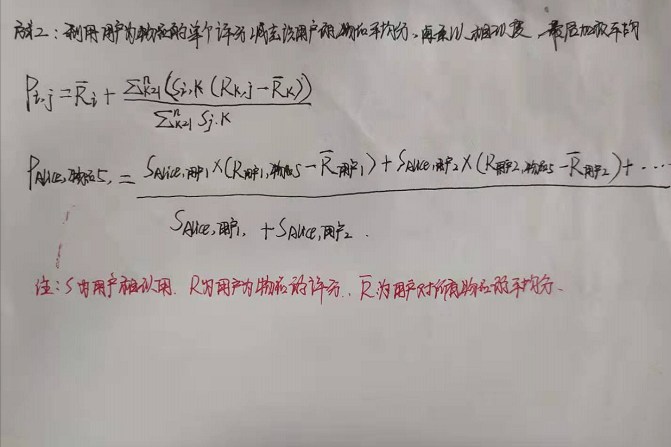 方式2：利用用户为物品的单个评分减去该用户的物品平均分，再乘以相似度，最后加权平均
P_{i,j} = R̄_i + \frac{∑_{k=1}^{n}(S_{i,K}(R_{K,j} - R̄_K))}{∑_{k=1}^{n} S_{j,K}}
P_{Alice,物品5,} = \frac{S_{Alice,用户1}×(R_{用户1,物品5} - R̄_{用户1}) + S_{Alice,用户2}×(R_{用户2,物品5} - R̄_{用户2}) + ···}{S_{Alice,用户1,} + S_{Alice,用户2}.}
注：S为用户相似用. R为用户为物品的评分. R̄为用户对所有物品的平均分.